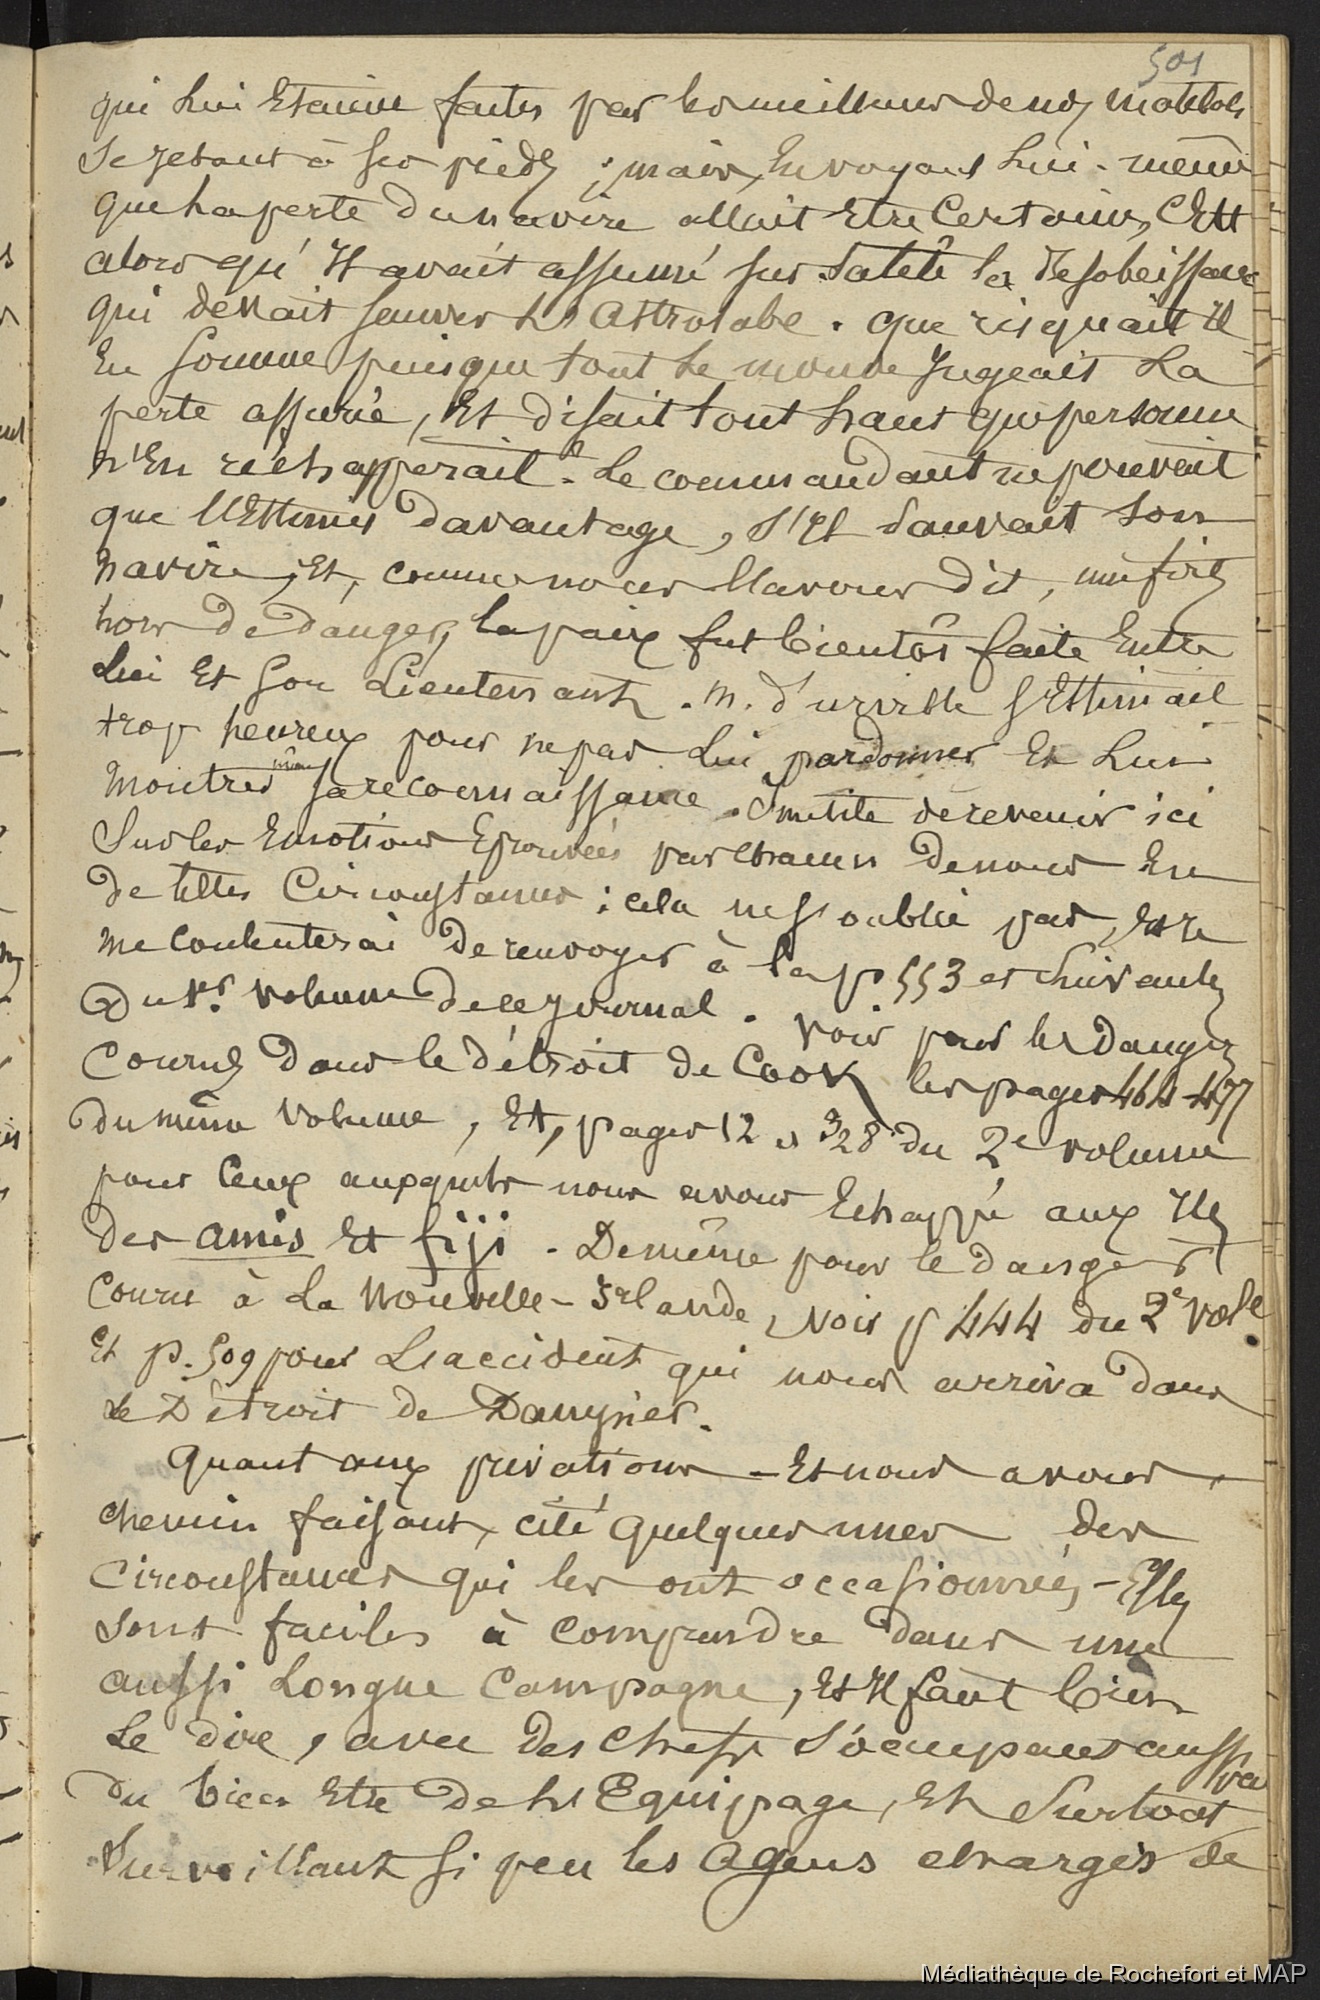 501
qui lui Etaient faites par les meilleurs de nos matelots
se jetant à ses pieds ; mais, En voyant lui-même
que la perte du navire allait Etre Certaine, C'Est
alors qu'Il avait assumé sur sa tête la desobeissance
qui devait sauver L'Astrolabe. que risquait il
En somme puisque tout le monde Jugeait La
perte assurée, Et disait tout haut que personne
n'En réchapperait. Le commandant ne pouvait
que l'Estimer davantage, s'Il sauvait son
navire ; Et, comme nous l'avons dit, une fois
hors de danger, la paix fut bientôt faite Entre
Lui Et son Lieutenant. M. d'urville s'Estimait
trop heureux pour ne pas Lui pardonner Et Lui
montrer même sa reconnaissance. Inutile de revenir ici
Sur les Emotions Eprouvées par chacun de nous En
de telles Circonstances : cela ne s'oublie pas, Et Je
me contenterai de renvoyer à la p. 553 et suivantes
Du 1er volume de ce Journal. Voir pour les dangers
Courus dans le détroit de Cook les pages 464-477
du même volume, Et, pages 12 et 328 du 2e volume
pour Ceux auxquels nous avons Echappé aux Iles
des amis Et fiji. De même pour le danger
Couru à La Nouvelle-Irlande, voir p 444 du 2e vol.
Et p. 509 pour L'accident qui nous arriva dans
Le Détroit de Dampier.
Quant aux privations - Et nous avons,
chemin faisant, cité quelques unes des
Circonstances qui les ont occasionnées, - Elles
sont faciles à comprendre dans une
aussi Longue Campagne, Et Il faut bien
Le dire, avec des chefs s'occupant aussi peu
du bien Etre de L'Equipage, Et Surtout
Surveillant si peu les Agens chargés de
Médiathèque de Rochefort et MAP